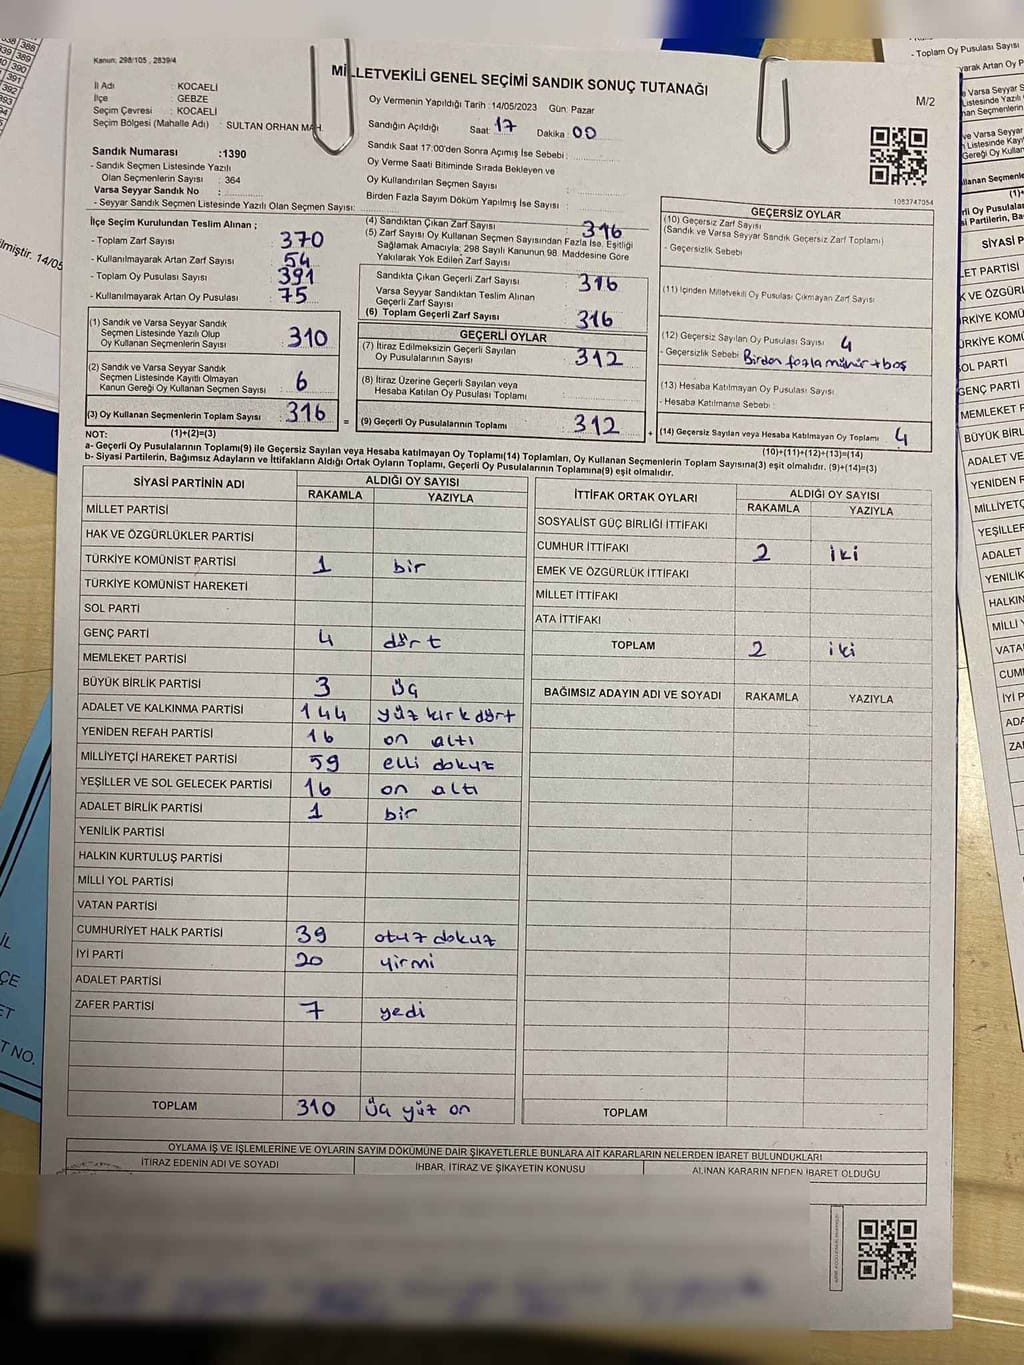 Kanun: 298/105 , 2839/4
MİLLETVEKİLİ GENEL SEÇİMİ SANDIK SONUÇ TUTANAĞI
M/2
İl Adı : KOCAELİ
İlçe : GEBZE
Seçim Çevresi : KOCAELİ
Seçim Bölgesi (Mahalle Adı) : SULTAN ORHAN MAH.
Oy Vermenin Yapıldığı Tarih : 14/05/2023 Gün: Pazar
Sandığın Açıldığı Saat: 17 Dakika: 00
Sandık Saat 17:00'den Sonra Açılmış İse Sebebi :
Oy Verme Saati Bitiminde Sırada Bekleyen ve
Oy Kullandırılan Seçmen Sayısı :
Birden Fazla Sayım Döküm Yapılmış İse Sayısı :
Sandık Numarası :1390
- Sandık Seçmen Listesinde Yazılı
Olan Seçmenlerin Sayısı : 364
Varsa Seyyar Sandık No :
- Seyyar Sandık Seçmen Listesinde Yazılı Olan Seçmen Sayısı:
1083747054
İlçe Seçim Kurulundan Teslim Alınan ;
- Toplam Zarf Sayısı : 370
- Kullanılmayarak Artan Zarf Sayısı : 54
- Toplam Oy Pusulası Sayısı : 391
- Kullanılmayarak Artan Oy Pusulası : 75
(1) Sandık ve Varsa Seyyar Sandık
Seçmen Listesinde Yazılı Olup
Oy Kullanan Seçmenlerin Sayısı : 310
(2) Sandık ve Varsa Seyyar Sandık
Seçmen Listesinde Kayıtlı Olmayan
Kanun Gereği Oy Kullanan Seçmen Sayısı : 6
(3) Oy Kullanan Seçmenlerin Toplam Sayısı : 316
(1)+(2)=(3)
(4) Sandıktan Çıkan Zarf Sayısı : 316
(5) Zarf Sayısı Oy Kullanan Seçmen Sayısından Fazla İse, Eşitliği
Sağlamak Amacıyla; 298 Sayılı Kanunun 98. Maddesine Göre
Yakılarak Yok Edilen Zarf Sayısı :
Sandıkta Çıkan Geçerli Zarf Sayısı : 316
Varsa Seyyar Sandıktan Teslim Alınan
Geçerli Zarf Sayısı :
(6) Toplam Geçerli Zarf Sayısı : 316
GEÇERLİ OYLAR
(7) İtiraz Edilmeksizin Geçerli Sayılan
Oy Pusulalarının Sayısı : 312
(8) İtiraz Üzerine Geçerli Sayılan veya
Hesaba Katılan Oy Pusulası Toplamı :
= (9) Geçerli Oy Pusulalarının Toplamı : 312
GEÇERSİZ OYLAR
(10) Geçersiz Zarf Sayısı
(Sandık ve Varsa Seyyar Sandık Geçersiz Zarf Toplamı)
- Geçersizlik Sebebi
(11) İçinden Milletvekili Oy Pusulası Çıkmayan Zarf Sayısı
(12) Geçersiz Sayılan Oy Pusulası Sayısı : 4
- Geçersizlik Sebebi Birden fazla mühür + boş
(13) Hesaba Katılmayan Oy Pusulası Sayısı
- Hesaba Katılmama Sebebi :
+ (14) Geçersiz Sayılan veya Hesaba Katılmayan Oy Toplamı 4
(10)+(11)+(12)+(13)=(14)
NOT:
a- Geçerli Oy Pusulalarının Toplamı(9) ile Geçersiz Sayılan veya Hesaba katılmayan Oy Toplamı(14) Toplamları, Oy Kullanan Seçmenlerin Toplam Sayısına(3) eşit olmalıdır. (9)+(14)=(3)
b- Siyasi Partilerin, Bağımsız Adayların ve İttifakların Aldığı Ortak Oyların Toplamı, Geçerli Oy Pusulalarının Toplamına(9) eşit olmalıdır.
SİYASİ PARTİNİN ADI ALDIĞI OY SAYISI
RAKAMLA YAZIYLA
MİLLET PARTİSİ
HAK VE ÖZGÜRLÜKLER PARTİSİ
TÜRKİYE KOMÜNİST PARTİSİ 1 bir
TÜRKİYE KOMÜNİST HAREKETİ
SOL PARTİ
GENÇ PARTİ 4 dört
MEMLEKET PARTİSİ
BÜYÜK BİRLİK PARTİSİ 3 üç
ADALET VE KALKINMA PARTİSİ 144 yüz kırk dört
YENİDEN REFAH PARTİSİ 16 on altı
MİLLİYETÇİ HAREKET PARTİSİ 59 elli dokuz
YEŞİLLER VE SOL GELECEK PARTİSİ 16 on altı
ADALET BİRLİK PARTİSİ 1 bir
YENİLİK PARTİSİ
HALKIN KURTULUŞ PARTİSİ
MİLLİ YOL PARTİSİ
VATAN PARTİSİ
CUMHURİYET HALK PARTİSİ 39 otuz dokuz
İYİ PARTİ 20 yirmi
ADALET PARTİSİ
ZAFER PARTİSİ 7 yedi
TOPLAM 310 üç yüz on
İTTİFAK ORTAK OYLARI ALDIĞI OY SAYISI
RAKAMLA YAZIYLA
SOSYALİST GÜÇ BİRLİĞİ İTTİFAKI
CUMHUR İTTİFAKI 2 iki
EMEK VE ÖZGÜRLÜK İTTİFAKI
MİLLET İTTİFAKI
ATA İTTİFAKI
TOPLAM 2 iki
BAĞIMSIZ ADAYIN ADI VE SOYADI RAKAMLA YAZIYLA
TOPLAM
OYLAMA İŞ VE İŞLEMLERİNE VE OYLARIN SAYIM DÖKÜMÜNE DAİR ŞİKAYETLERLE BUNLARA AİT KARARLARIN NELERDEN İBARET BULUNDUKLARI
İTİRAZ EDENİN ADI VE SOYADI İHBAR, İTİRAZ VE ŞİKAYETİN KONUSU ALINAN KARARIN NEDEN İBARET OLDUĞU